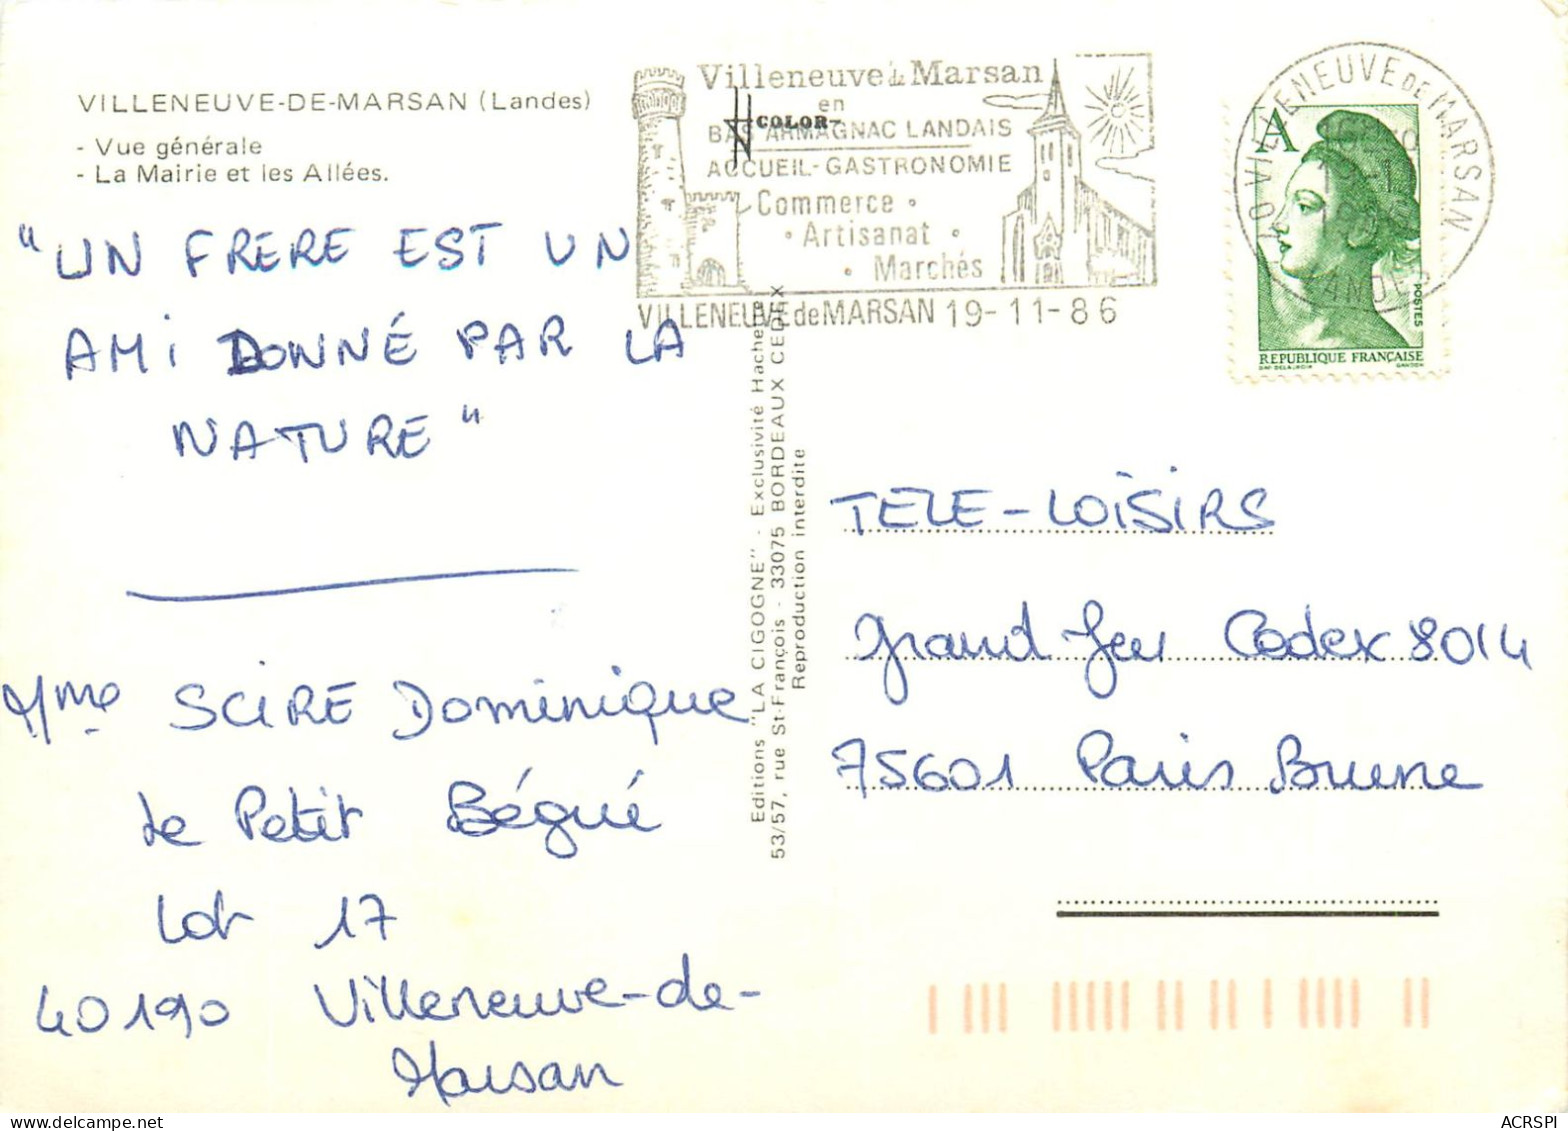 VILLENEUVE-DE-MARSAN (Landes)
- Vue générale
- La Mairie et les Allées.
"UN FRERE EST UN
AMI DONNÉ PAR LA
NATURE"
Mme SCIRE Dominique
Le Petit Bégué
Lot 17
40190 Villeneuve-de-
Marsan
Villeneuve de Marsan
en
COLOR
BAS ARMAGNAC LANDAIS
ACCUEIL-GASTRONOMIE
Commerce •
• Artisanat •
• Marchés
VILLENEUVE de MARSAN 19-11-86
40 VILLENEUVE DE MARSAN
LANDES
A
POSTES
REPUBLIQUE FRANÇAISE
DAP. DELACROIX GANDON
Editions "LA CIGOGNE" - Exclusivité Hachette
53/57, rue St-François - 33075 BORDEAUX CEDEX
Reproduction interdite
TELE-LOISIRS
Grand Jeu Cedex 8014
75601 Paris Brune
ACRSPI